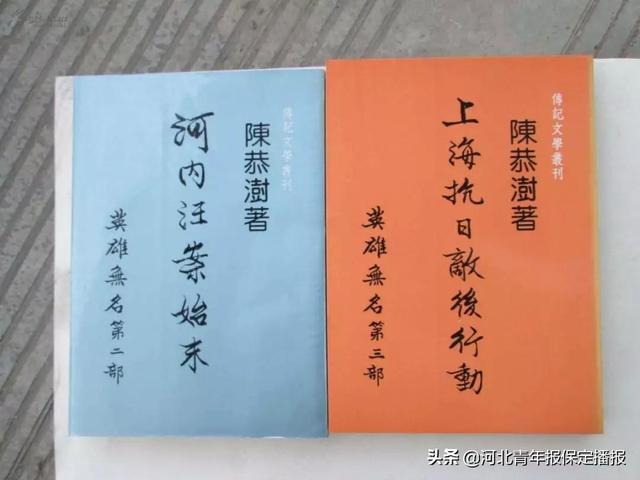 傳記文學叢刊
陳恭澍著
河内汪案始末
英雄無名第二部
傳記文學叢刊
陳恭澍著
上海抗日敵後行動
英雄無名第三部
头条 @河北青年报保定播报